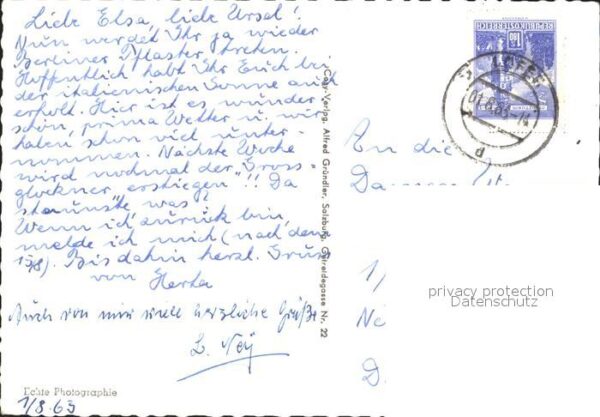 Liebe Elsa, liebe Ursel!
Nun werdet Ihr ja wieder
Berliner Pflaster treten.
Hoffentlich habt Ihr Euch bei
der italienischen Sonne gut
erholt. Hier ist es wunder-
schön, prima Wetter u. wir
haben schon viel unter-
nommen. Nächste Woche
wird nochmal der "Gross-
glockner erstiegen"!! Da
staunste was?
Wenn ich zurück bin,
melde ich mich (nach dem
13/8). Bis dahin herzl. Gruss
von Herta
Auch von mir viele herzliche Grüße
L. Ney
Echte Photographie
1/8.63
Cosy-Verlag, Alfred Gründler, Salzburg, Getreidegasse Nr. 22
REPUBLIK ÖSTERREICH
1.80
LOFER
An die
1/
Ne
D.
privacy protection
Datenschutz